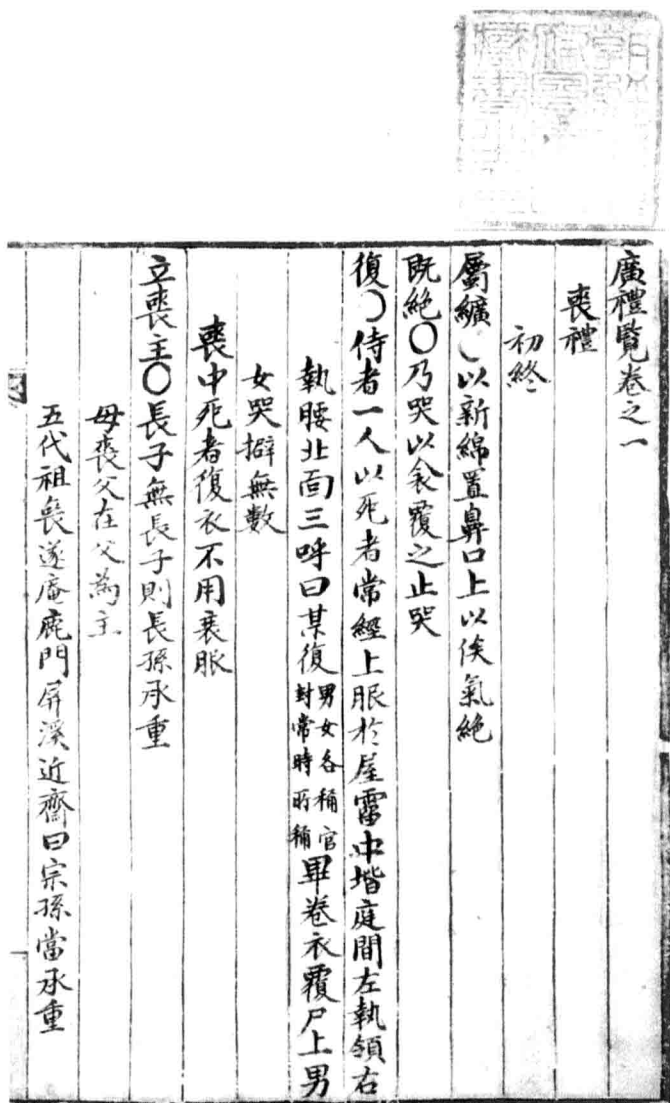 廣禮覽卷之一
喪禮
初終
屬纊○以新綿置鼻口上以俟氣絶
既絶○乃哭以衾覆之止哭
復○侍者一人以死者常經上服於屋霤中堦庭間左執領右
執腰北面三呼曰某復男女各稱官封常時所稱畢卷衣覆尸上男
女哭擗無數
喪中死者復衣不用衰服
立喪主○長子無長子則長孫承重
母喪父在父爲主
五代祖喪遂庵鹿門屛溪近齋曰宗孫當承重